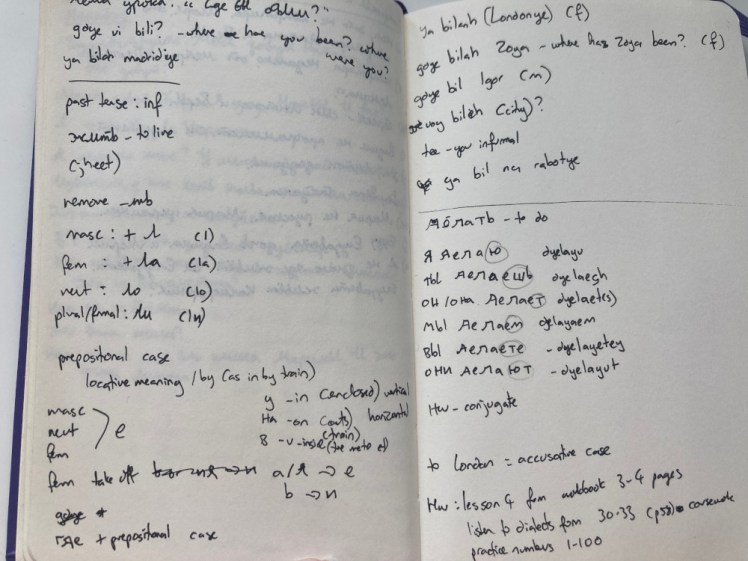 "где вы были?"
gdye vi bili? - where have you been? where were you?
ya bilah madridye
past tense : inf
жить - to live
(jheet)
remove -ть
masc : + л (l)
fem : + ла (la)
neut : ло (lo)
plural/formal : ли (li)
prepositional case
locative meaning / by (as in by train)
masc
neut
fem
e
y - in (enclosed) vertical
на - on (outs) horizontal
в - v - inside (train) (the metro)
fem take off a/я → e
ь → и
где + prepositional case
ya bilah (Londonye) (f)
gdye bilah Zoya - where has Zoya been? (f)
gdye bil Igor (m)
bilah (city)?
tee - you informal
ya bil na rabotye
делать - to do
я делаю dyelayu
ты делаешь dyelaesh
он/она делает dyelaet(s)
мы делаем dyelayaem
вы делаете - dyelayetey
они делают - dyelayut
Hw - conjugate
to London = accusative case
Hw : lesson 4 from workbook 3-4 pages
listen to dialects from 30-33 (p58) coursebook
practice numbers 1-100